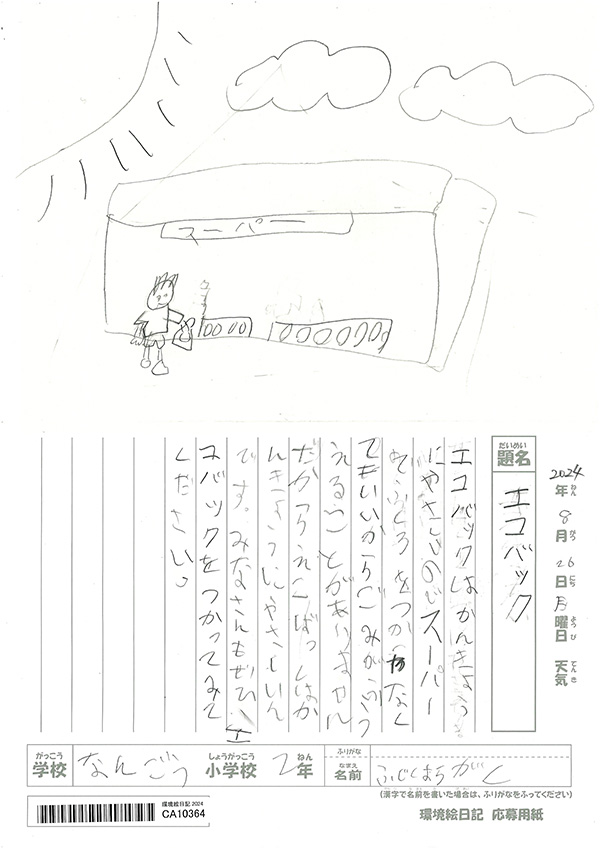 スーパー
2024年ねん 8月がつ 26日にち 月曜日ようび 天気てんき
だいめい
題名
エコバック
エコバックはかんきょう
にやさしいのでスーパー
でふくろをつかわなく
てもいいからごみがふ
えることがありません
だからえこばっくはか
んきょうにやさしいん
です。みなさんもぜひエ
コバックをつかってみて
ください。
がっこう
学校
なんごう
しょうがっこう
小学校
2年
ねん
ふりがな
なまえ
名前
がく
(漢字で名前を書いた場合は、ふりがなをふってください)
環境絵日記 2024
CA10364
環境絵日記 応募用紙